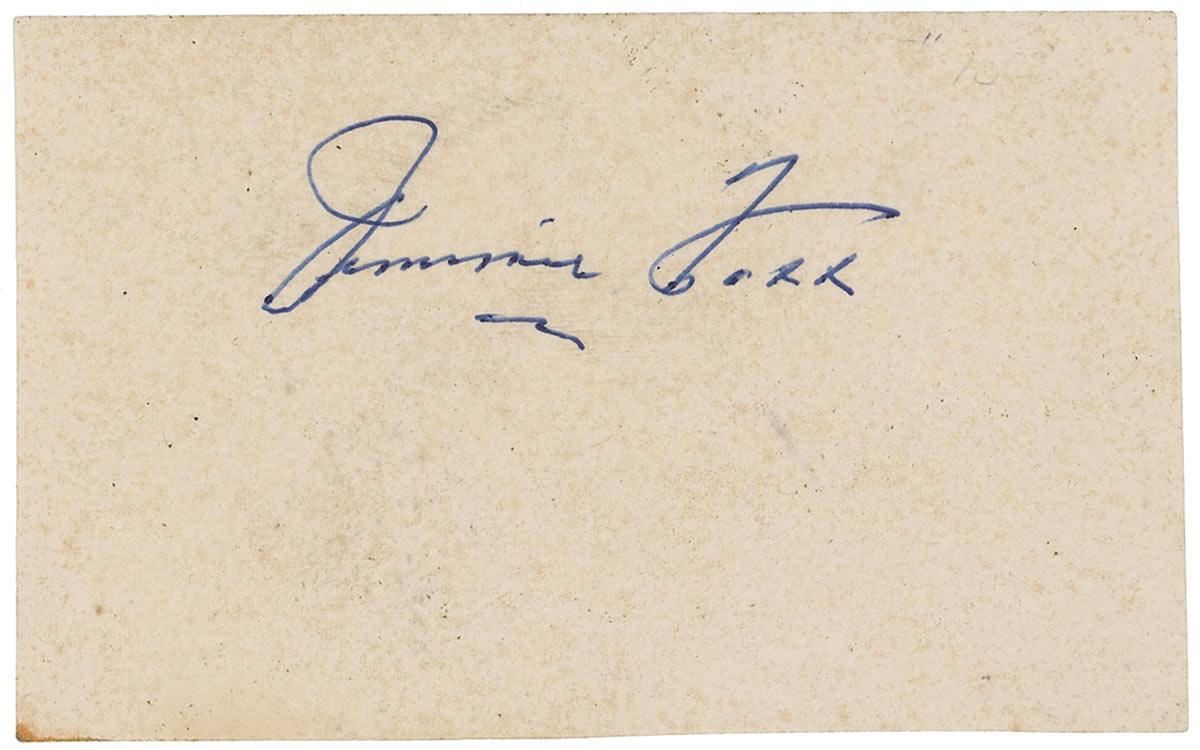 Jimmie Foxx